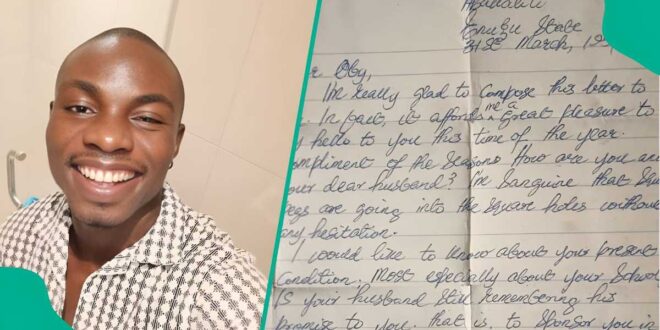 Enugu State
31st March, 19
Oby,
I'm really glad to compose this letter to
In fact, it affords me a great pleasure to
hello to you this time of the year.
ompliment of the Seasons. How are you and
our dear husband? I'm Sanguine that Squ
egs are going into the square holes without
any hesitation.
I would like to know about your present
Condition. Most especially about your School
Is your husband still remembering his
promise to you, that is, to sponsor you in